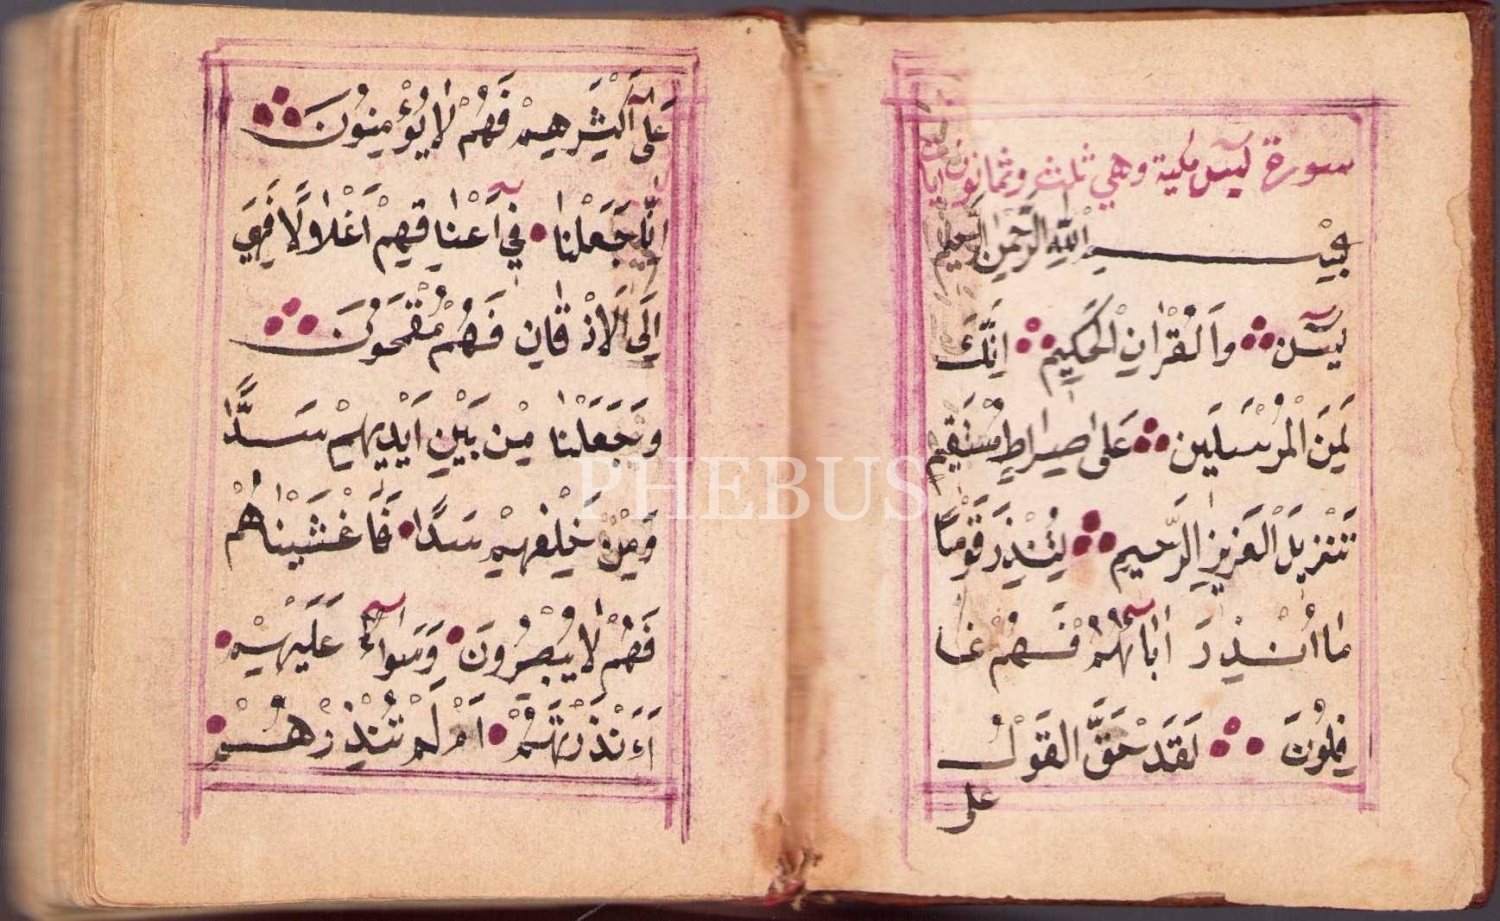 سورة يٓسٓ مكية وهي ثلث وثمانون
بِسْــــمِ اللّٰهِ الرَّحْمٰنِ الرَّحِيم
يٓسٓ وَالْقُرْاٰنِ الْحَكِيمِ اِنَّكَ
لَمِنَ الْمُرْسَلِينَ عَلٰى صِرَاطٍ مُسْتَقِيمٍ
تَنْزِيلَ الْعَزِيزِ الرَّحِيمِ لِتُنْذِرَ قَوْمًا
مَا اُنْذِرَ اٰبَآؤُهُمْ فَهُمْ غَا
فِلُونَ لَقَدْ حَقَّ الْقَوْلُ
على
عَلٰٓى اَكْثَرِهِمْ فَهُمْ لَا يُؤْمِنُونَ
اِنَّا جَعَلْنَا فِىٓ اَعْنَاقِهِمْ اَغْلَالًا فَهِىَ
اِلَى الْاَذْقَانِ فَهُمْ مُقْمَحُونَ
وَجَعَلْنَا مِنْ بَيْنِ اَيْدِيهِمْ سَدًّا
وَمِنْ خَلْفِهِمْ سَدًّا فَاَغْشَيْنَاهُمْ
فَهُمْ لَا يُبْصِرُونَ وَسَوَآءٌ عَلَيْهِمْ
ءَاَنْذَرْتَهُمْ اَمْ لَمْ تُنْذِرْهُمْ
PHEBUS